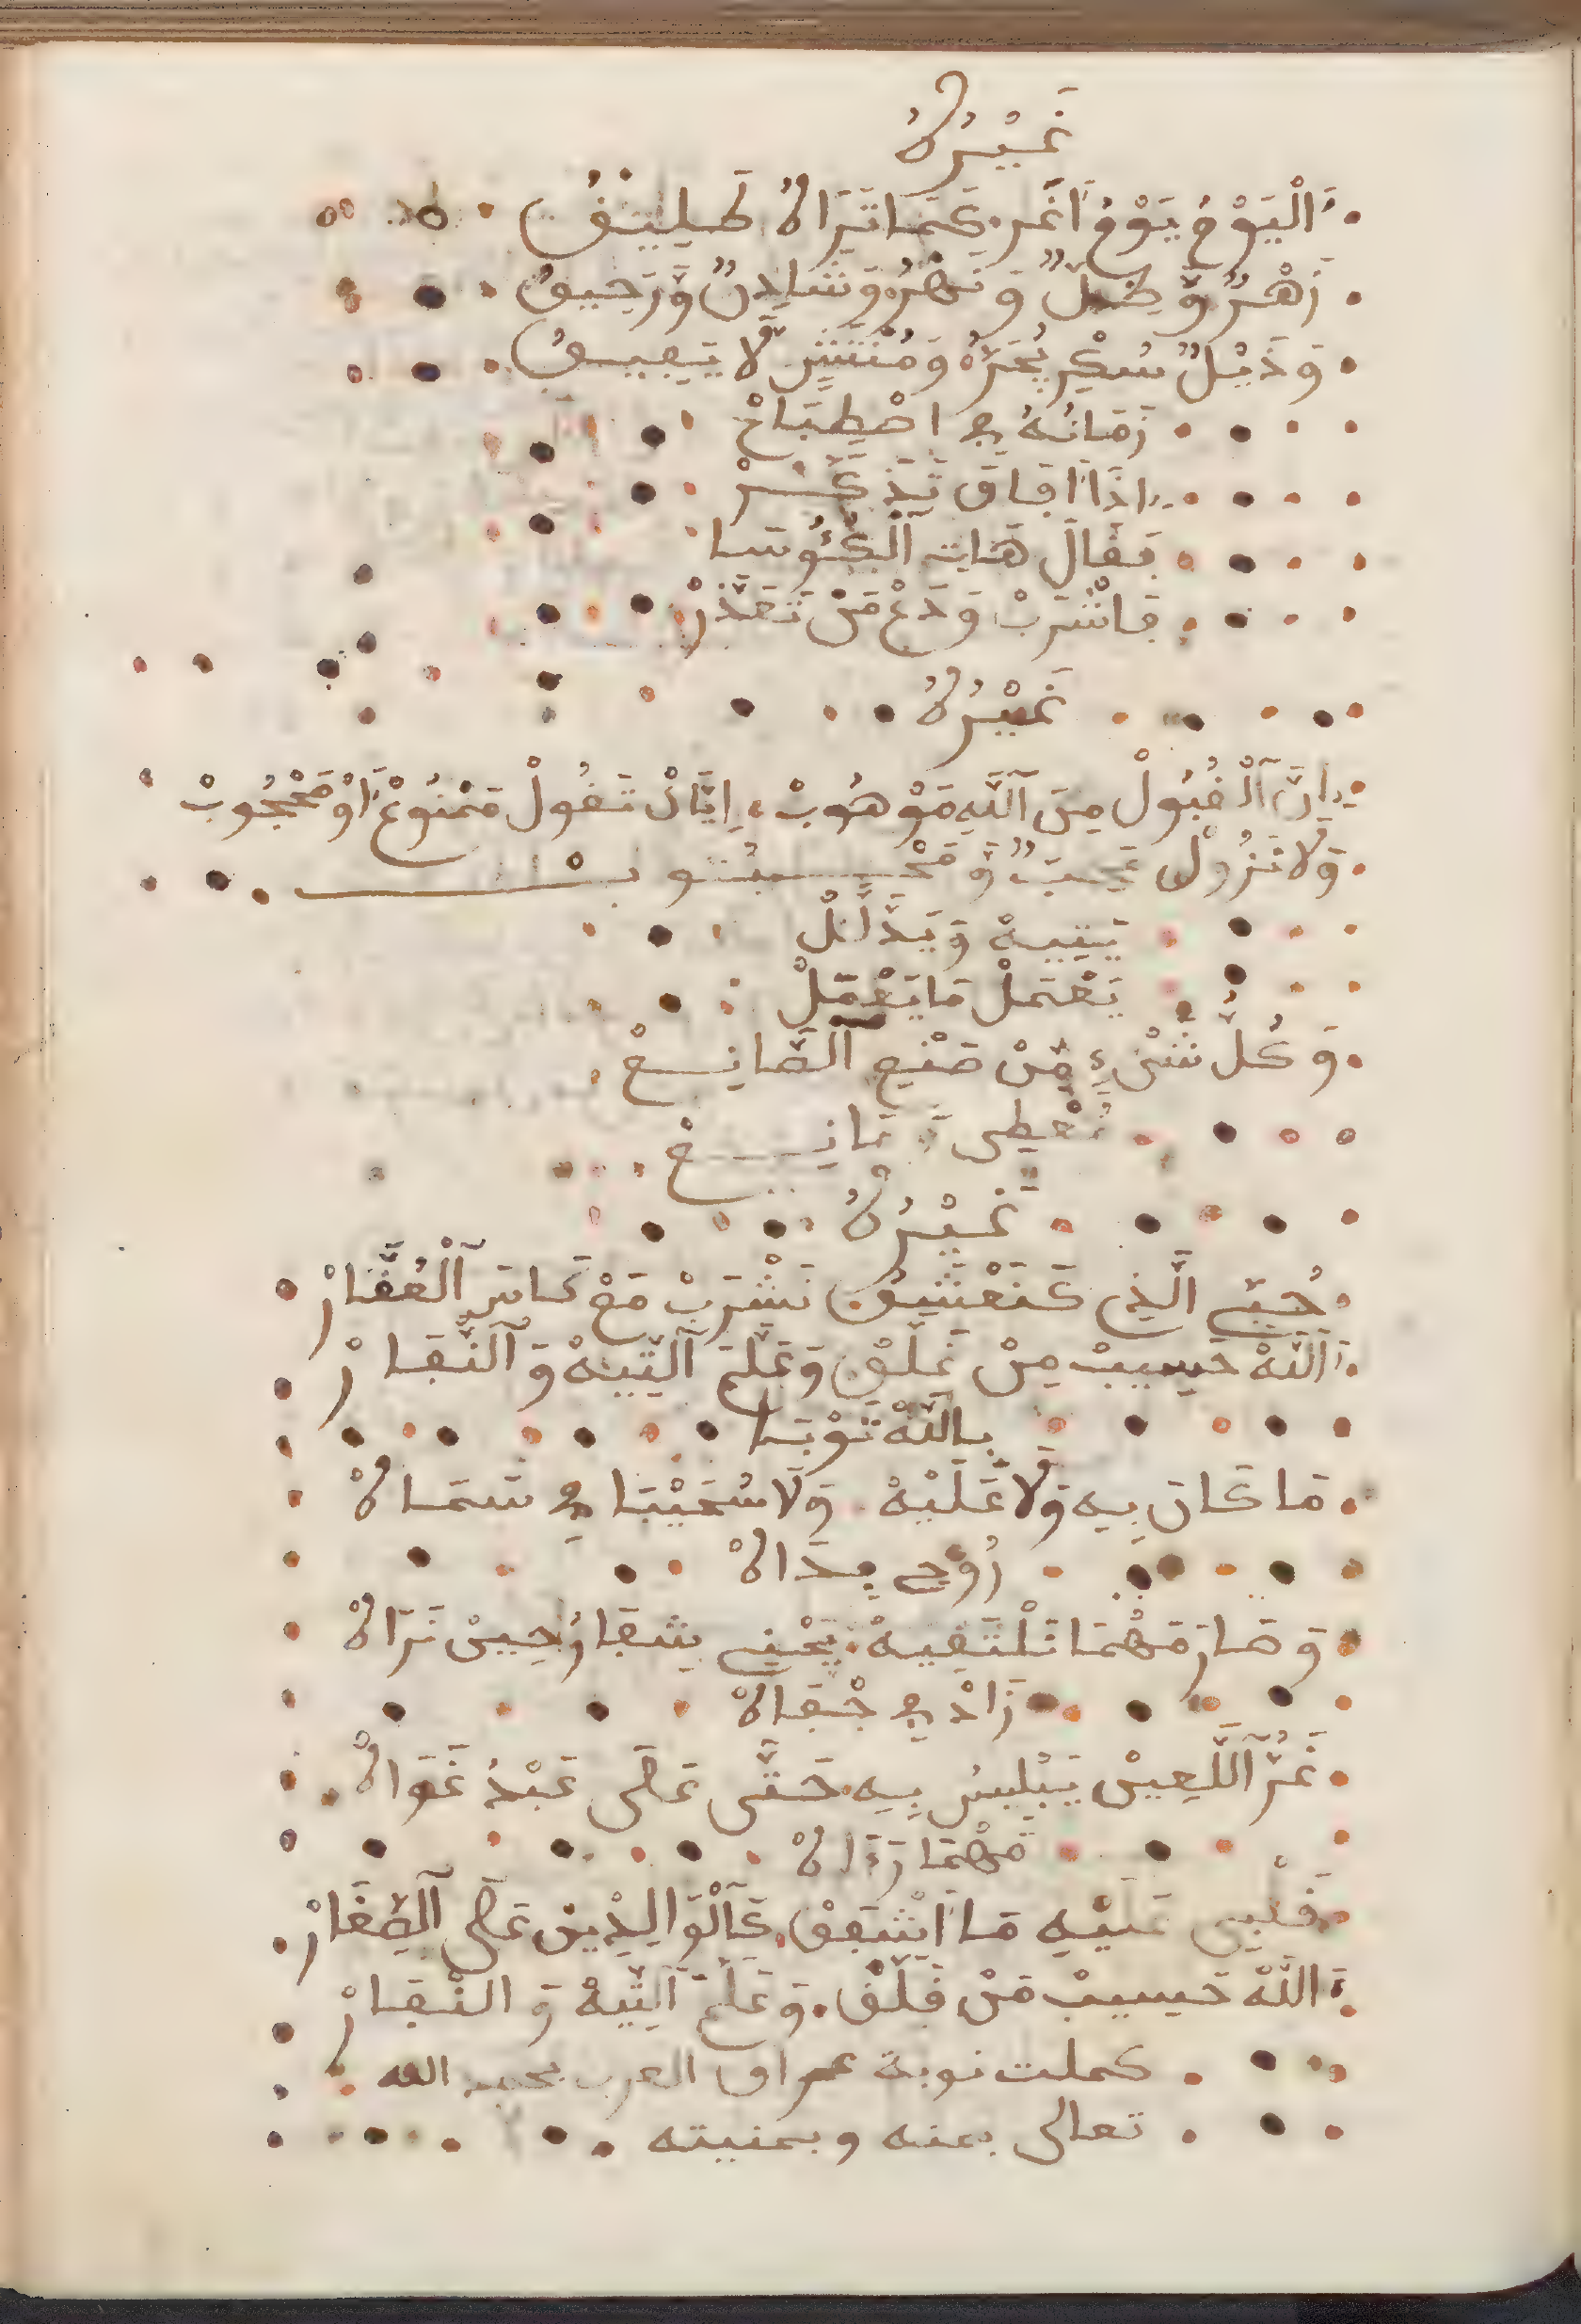 غَيْرُهُ
اَلْيَوْمُ يَوْمٌ اَغَر كَمَا تَرَاهُ طَلِيقُ
زَهْرٌ وَّظِلٌّ وَنَهْرٌ وَشَادِنٌ وَّرَحِيقُ
وَذَيْلُ سُكْرٍ يُجَرُّ وَمُنْتَشٍ لَّا يَفِيقُ
زَمَانُهُ فِي اصْطِبَاحْ
إِذَا اَفَاقَ تَذَكَّرْ
فَقَالَ هَاتِ الْكُئُوسَا
فَاشْرَبْ وَدَعْ مَنْ تَعَذَّرْ
غَيْرُهُ
إِنَّ اَلْقُبُولْ مِنَ اَللَّهِ مَوْهُوبْ إِيَّاكْ تَقُولْ مَمْنُوعْ اَوْ مَحْجُوبْ
وَلَا تَزُولْ وَّمَحْبُوبْ
يَتِيهْ وَيَدَّلَّلْ
يَعْمَلْ مَا يَعْمَلْ
وَكُلُّ شَيْءٍ مِّنْ صَنْعِ اَلصَّانِعْ
مُعْطِي وَمَانِعْ
غَيْرُهُ
حُبِّي الَّذِي كَنَعْشَقُ نَشْرَبْ مَعْ كَاسِ اَلْعُقَّارْ
اَللَّهْ حَسِيبْ مِنْ عَلَّقْ وَعَلَّمَ اَلتِّيهْ وَاَلنِّفَارْ
بِاللَّهْ تَوْبَا
مَا كَانَ بِيهْ وَلَا عَلَيْهْ وَلَا سُحَيْبَا فِي سَمَاهْ
رُوحِي فِدَاهْ
وَصَارْ مَهْمَا نَلْتَقِيهْ يَجْنِي شِفَارُ حِينْ نَرَاهْ
زَادْ فِي جْفَاهْ
غَرُّ اَللَّعِينْ يَبْلِيسُ بِيهْ حَتَّى عَلَى عَبْدُ غَوَاهْ
مَهْمَا رَءَاهْ
قَلْبِي عَلَيْهِ مَا اَشْفَقْ كَاَلْوَالِدِينْ عَلَى اَلصِّغَارْ
اَللَّهْ حَسِيبْ مَنْ قَلَّقْ وَعَلَّمَ اَلتِّيهْ وَالنِّفَارْ
كملت نوبة عراق العرب بحمد الله
تعالى بمنه وبمنيته